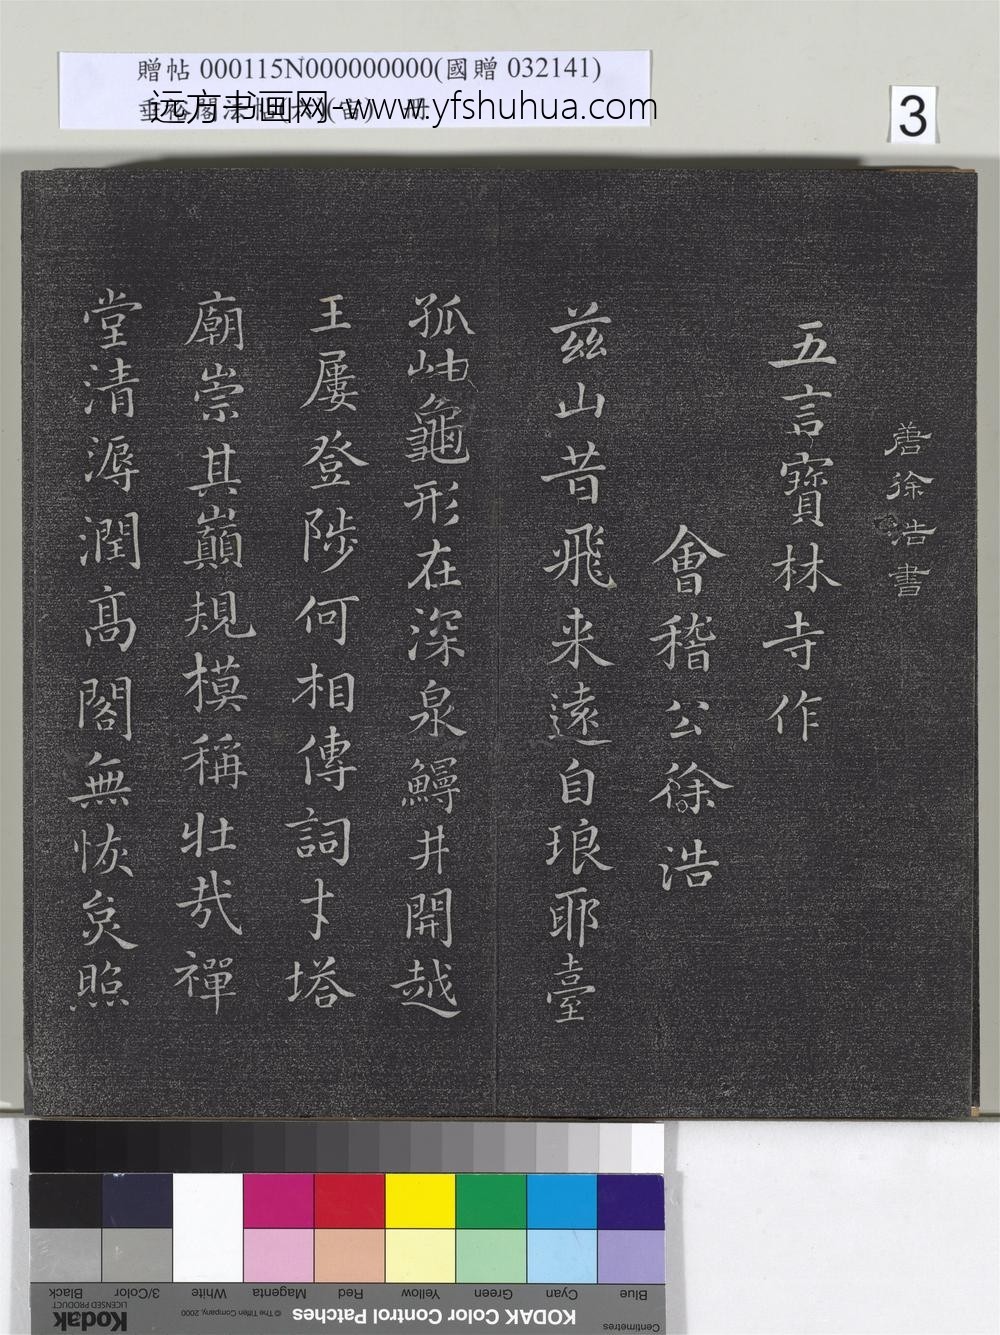 贈帖 000115N000000000(國贈 032141)
远方书画网-www.yfshuhua.com
3
唐徐浩書
五言寶林寺作
會稽公徐浩
兹山昔飛来遠自琅耶臺
孤岫龜形在深泉鰻井開越
王屢登陟何相傳詞才塔
廟崇其巔規模稱壯哉禪
堂清溽潤高閣無恢炱照
Blue
Cyan
Green
Yellow
Red
Magenta
White
3/Color
Black
Centimetres
KODAK Color Control Patches
© The Tiffen Company, 2000
Kodak
LICENSED PRODUCT